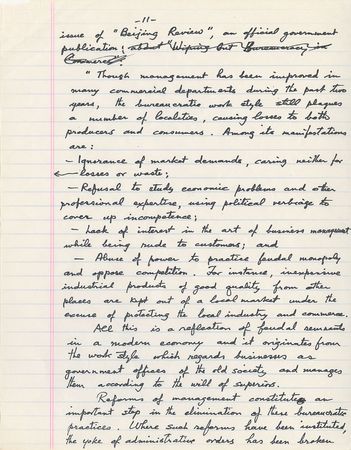 -11-
issue of "Beijing Review", an official government
publication: about "Wiping Out Bureaucracy in
Commerce".
" Though management has been improved in
many commercial departments during the past two
years, the bureaucratic work style still plagues
a number of localities, causing losses to both
producers and consumers. Among its manifestations
are:
– Ignorance of market demands, caring neither for
losses or waste;
– Refusal to study economic problems and other
professional expertise, using political verbiage to
cover up incompetence;
– Lack of interest in the art of business management
while being rude to customers; and
– Abuse of power to practice feudal monopoly
and oppose competition. For instance, inexpensive
industrial products of good quality from other
places are kept out of a local market under the
excuse of protecting the local industry and commerce.
All this is a reflection of feudal remnants
in a modern economy and it originates from
the work style which regards businesses as
government offices of the old society and manages
them according to the will of superiors.
Reforms of management constitute an
important step in the elimination of these bureaucratic
practices. Where such reforms have been instituted,
the yoke of administrative orders has been broken